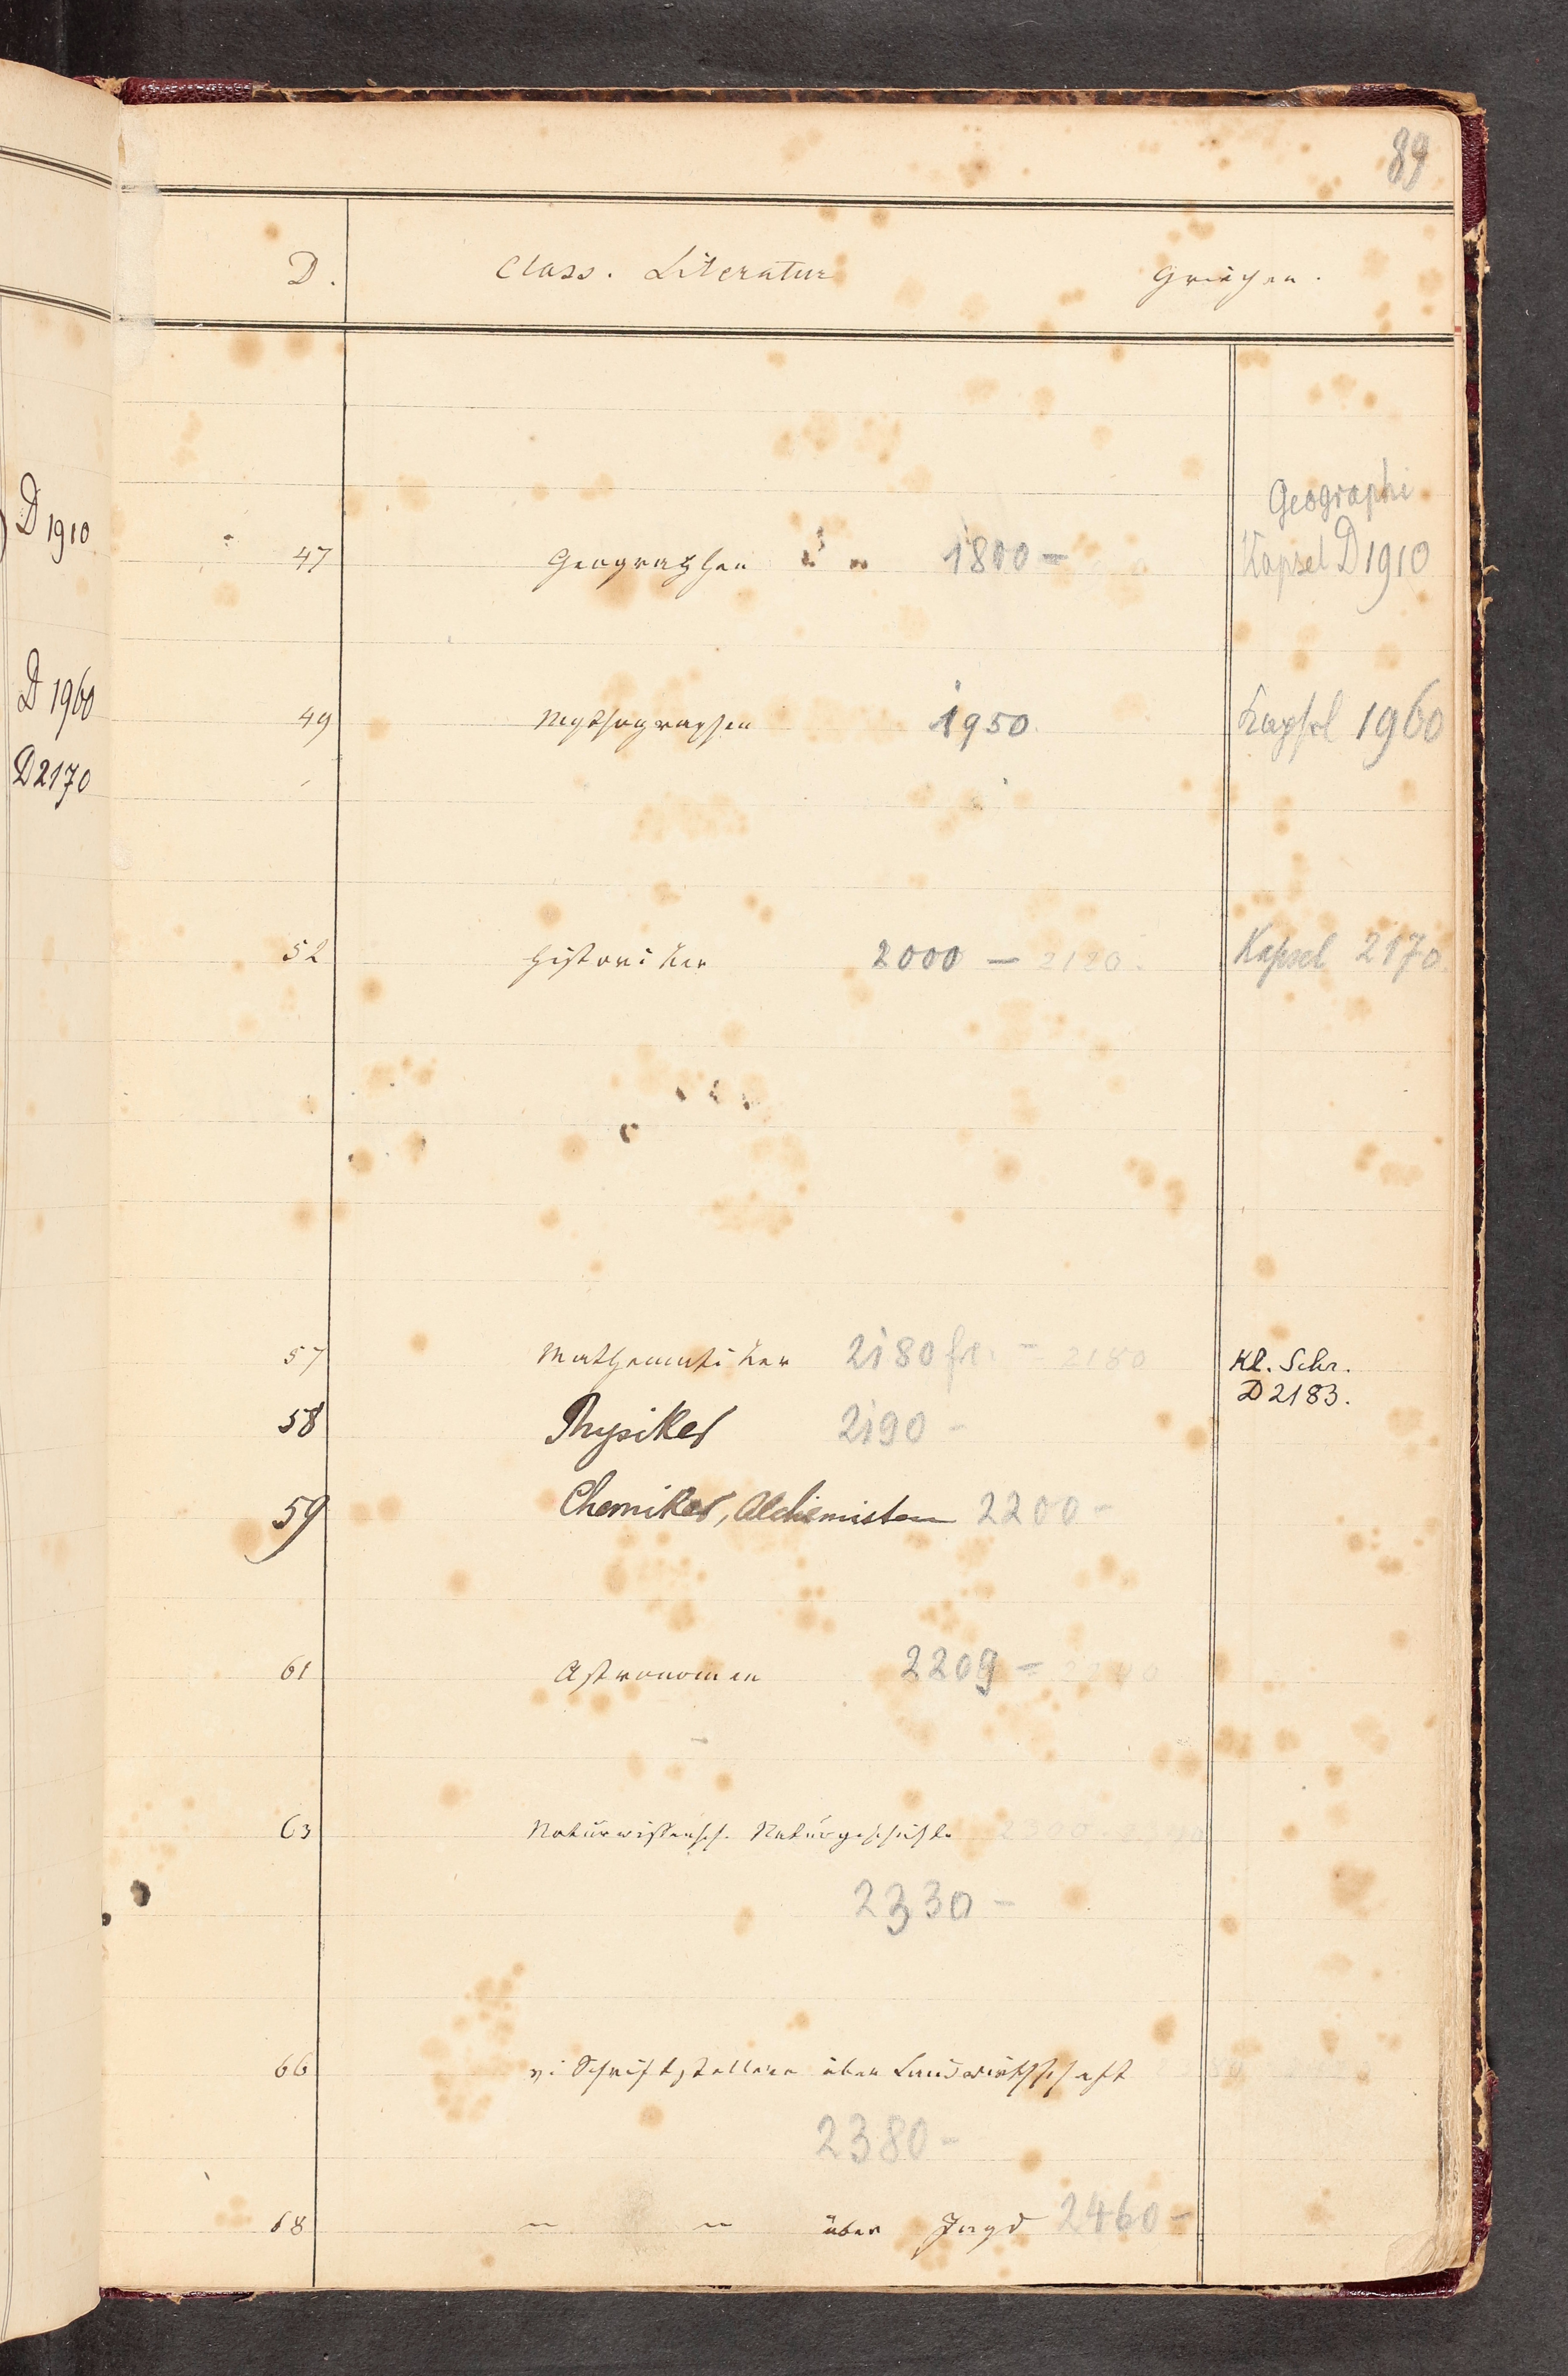 89
D. Class. Literatur Griechen.
D 1910
D 1960
D 2170
Geographi
47 Geographen 1800 – Kapsel D 1910
49 Mythographen 1950 Kapsel 1960
52 Historiker 2000 – 2120. Kapsel 2170
57 Mathematiker 2180 – 2180 Kl. Schr.
D 2183.
58 Physiker 2190 –
59 Chemiker, Alchemisten 2200 –
61 Astronomen 2209 –
63 Naturwissensch. Naturgeschichte
2330 –
66 Schriftsteller über Landwirthschaft
2380 –
68 " " über Jagd 2460 –